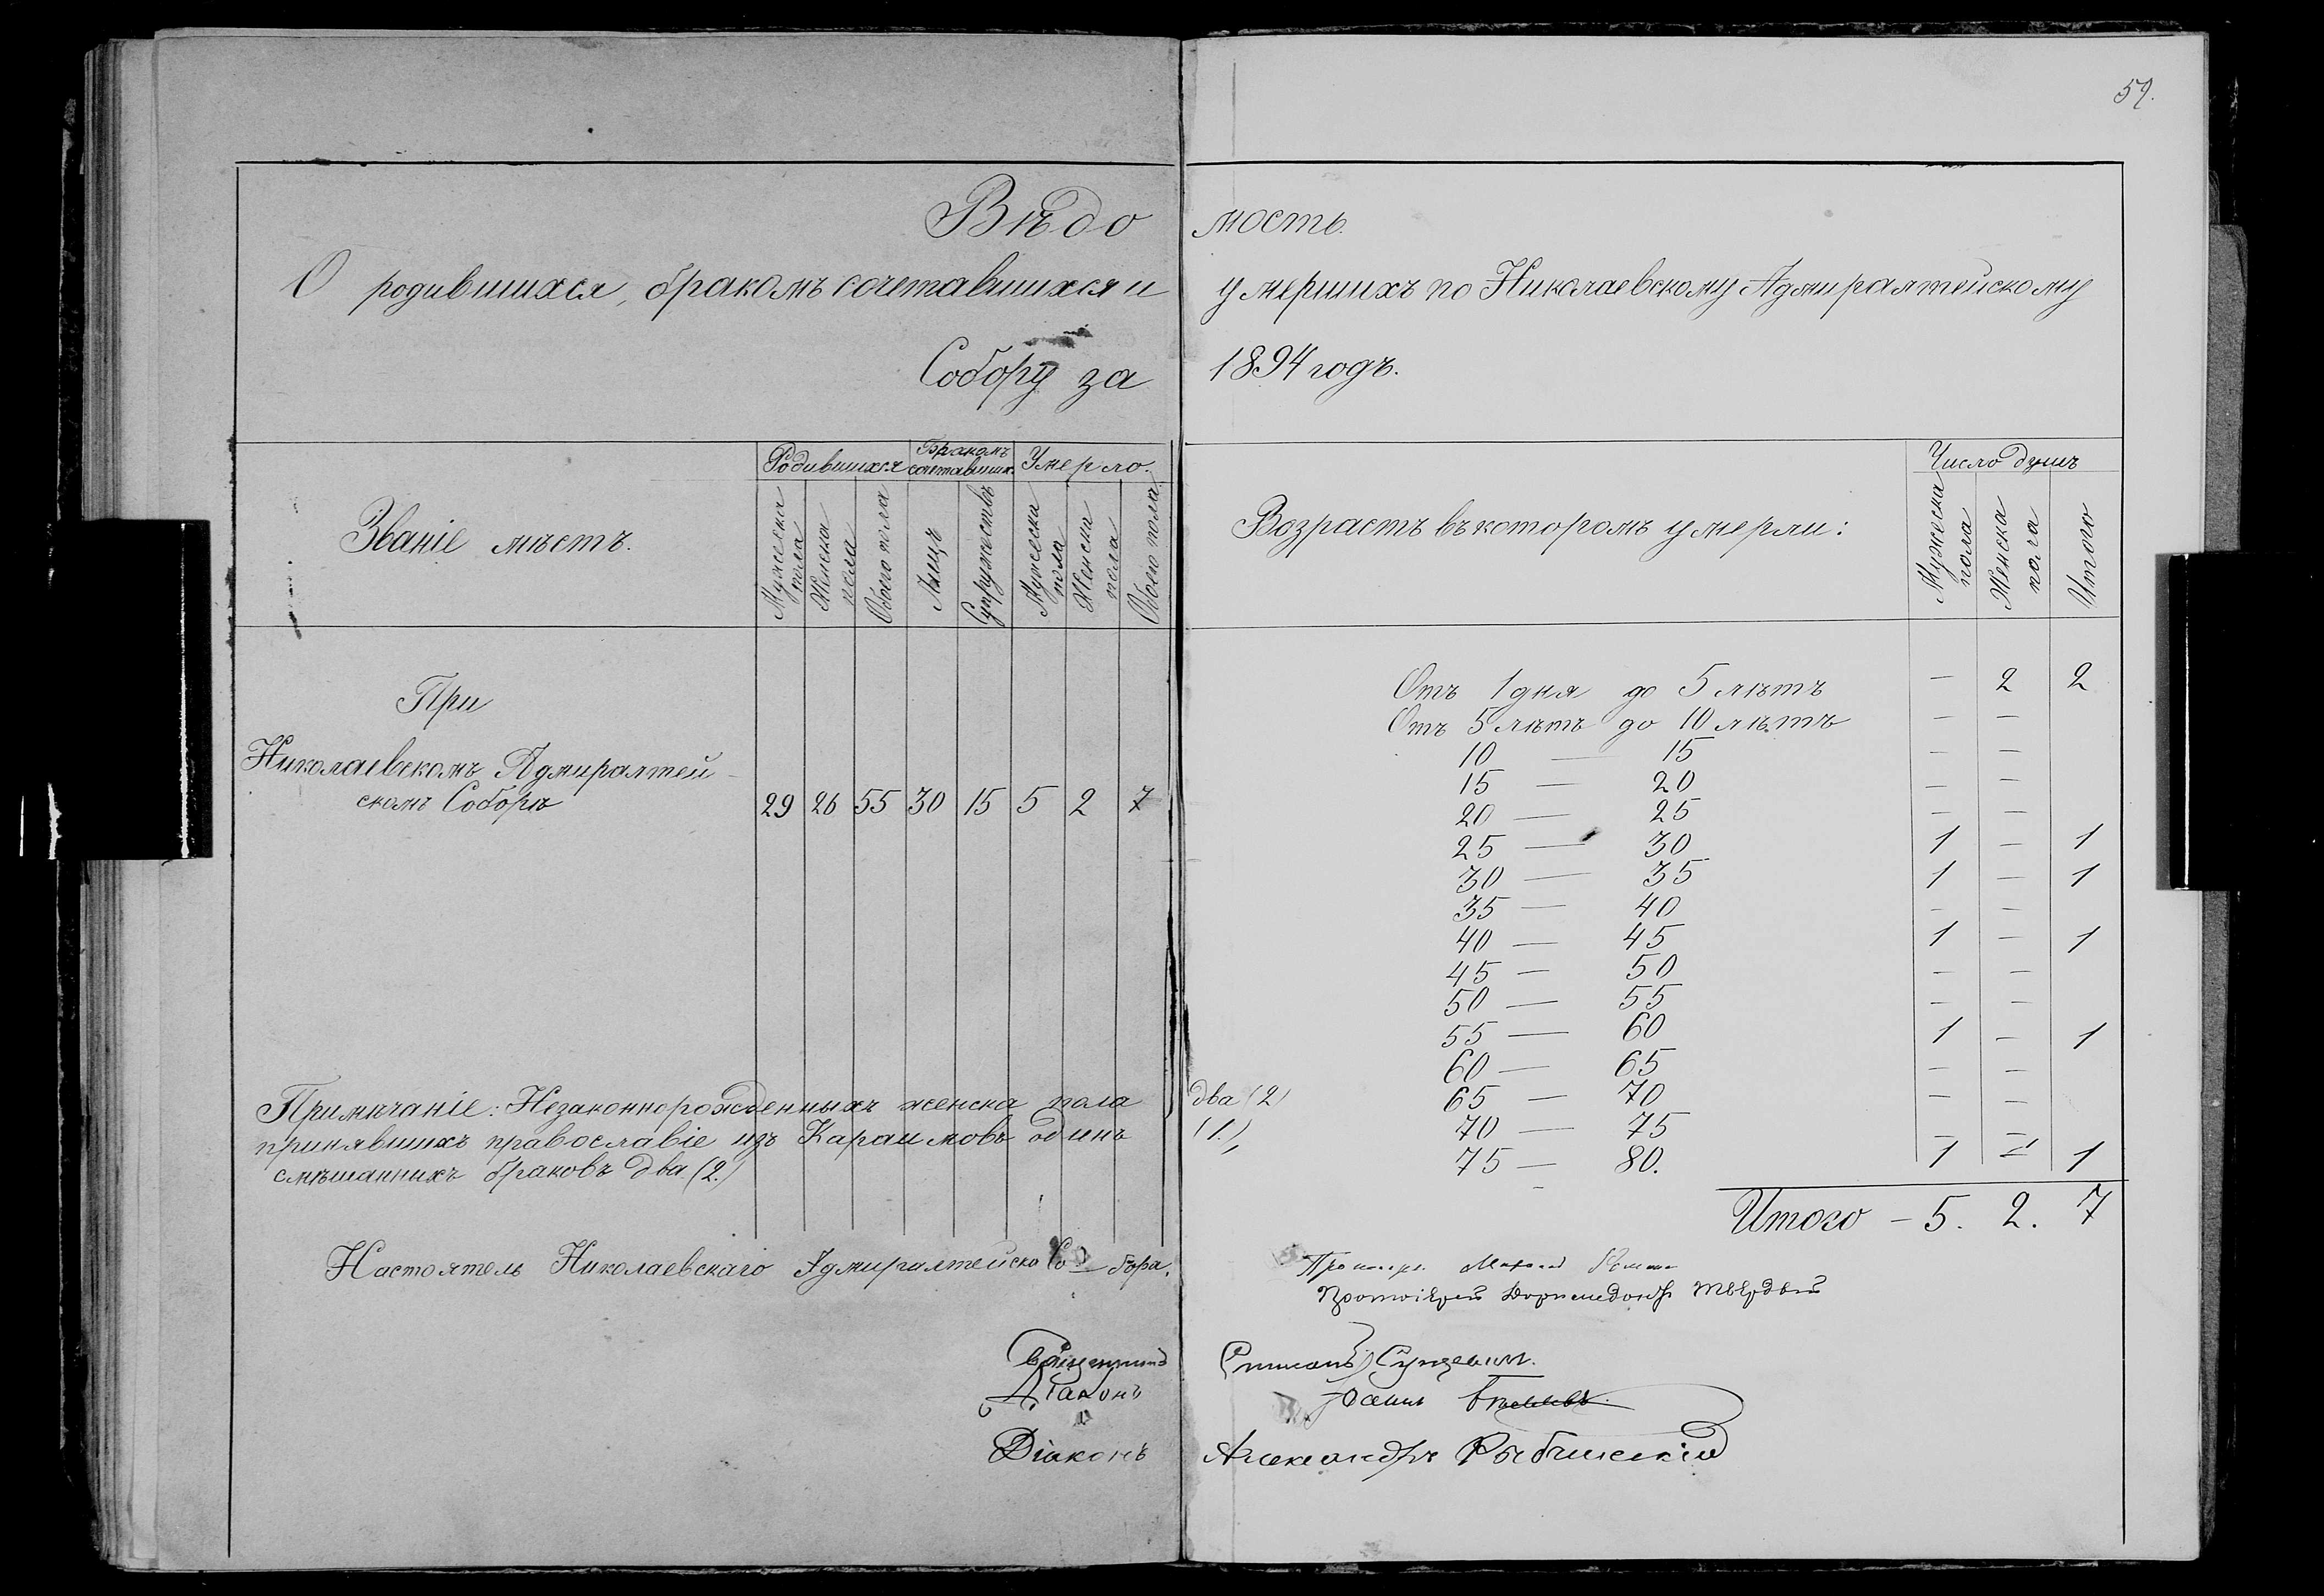 59.
Вѣдо мость.
О родившихся, бракомъ сочетавшихся и умершихъ по Николаевскому Адмиралтейскому
Собору за 1894 годъ.
Званіе мѣстъ.
Родившихся
Бракомъ сочетавших.
Умерло.
Мужеска пола
Женска пола
Обоего пола
Лицъ
Супружествъ
Мужеска пола
Женска пола
Обоего пола
При
Николаевскомъ Адмиралтей-
скомъ Соборѣ 29 26 55 30 15 5 2 7
Примѣчаніе: Незаконнорожденныхъ женска пола два (2)
принявшихъ православіе изъ Караимовъ одинъ (1.),
смѣшанныхъ браковъ два (2.)
Возрастъ въ которомъ умерли:
Число душъ
Мужеска пола
Женска пола
Итого
Отъ 1 дня до 5 лѣтъ — 2 2
Отъ 5 лѣтъ до 10 лѣтъ — —
10 — 15 — —
15 — 20 — —
20 — 25 — —
25 — 30 1 — 1
30 — 35 1 — 1
35 — 40 — —
40 — 45 1 — 1
45 — 50 — —
50 — 55 — —
55 — 60 1 — 1
60 — 65 — —
65 — 70 — —
70 — 75 — —
75 — 80. 1 — 1
Итого — 5. 2. 7
Настоятель Николаевскаго Адмиралтейско Со — бора,
Протоіерей Доримедонтъ Твердый
Священникъ
Діаконъ
Діаконъ Александръ